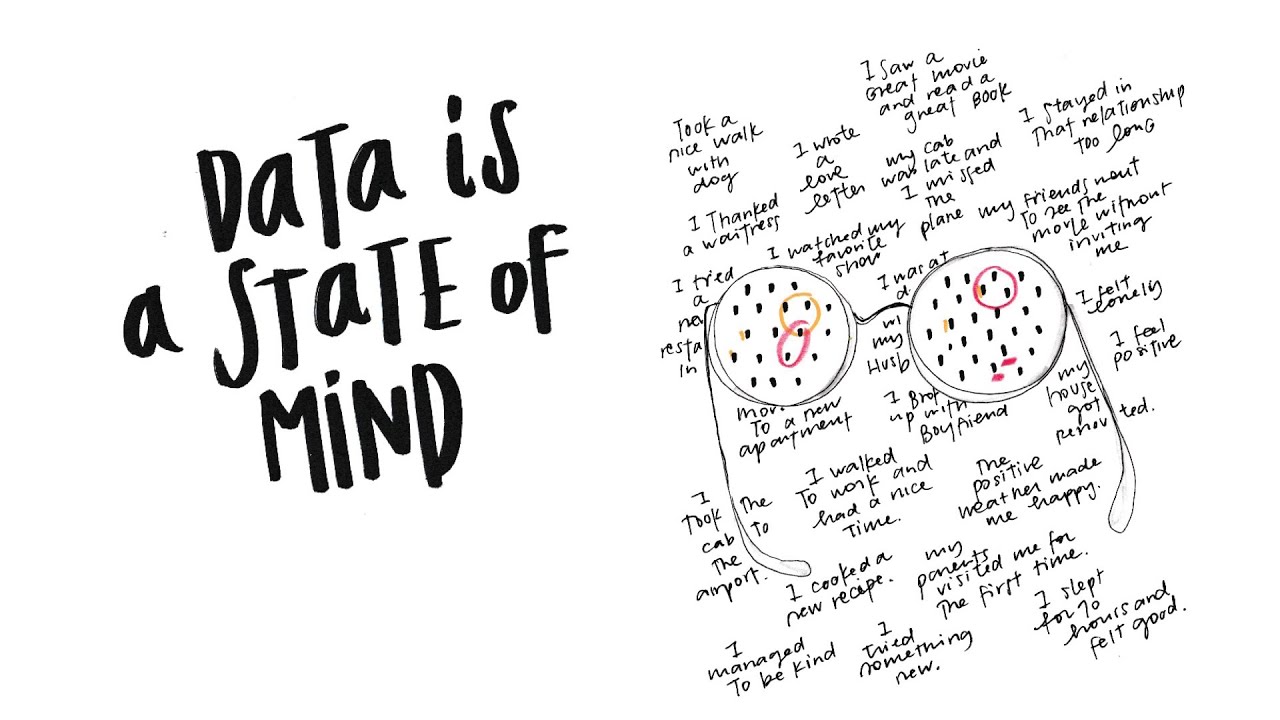 Data is
a State of
Mind
I saw a
great movie
and read a
great Book
Took a
nice walk
with
dog
I wrote
a
love
letter
my cab
was late and
I missed
the
plane
I stayed in
That relationship
too long
I Thanked
a waitress
I watched my
favorite
show
my friends went
To see the
movie without
inviting
me
I tried
a
resta
in
I was at
my
Husb
I felt
lonely
I feel
positive
To a new
apartment
up with
Boyfriend
my
house
got
I walked
To work and
had a nice
time.
The
positive
weather made
me happy.
I
Took The
cab To
The
airport.
I cooked a
new recipe.
my
parents
visited me for
The first time.
I
managed
To be kind
I
tried
something
new.
I slept
for 70
hours and
felt good.